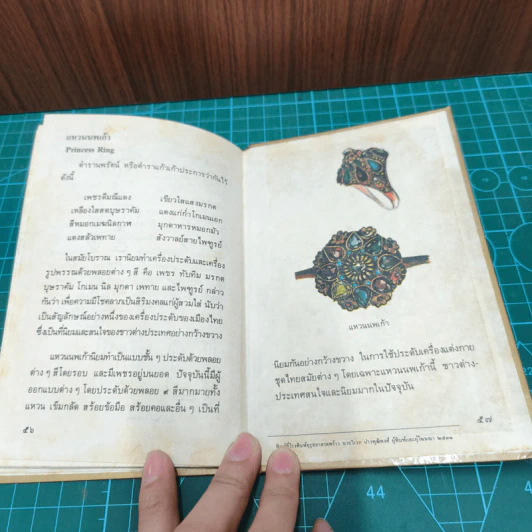 แหวนนพเก้า
Princess Ring
ตำรานพรัตน์ หรือตำราแก้วเก้าประการว่ากันไว้
ดังนี้
เพชรดีมณีแดง เขียวใสแสงมรกต
เหลืองใสสดบุษราคัม แดงแก่ก่ำโกเมนเอก
สีหมอกเมฆนิลกาฬ มุกดาหารหมอกมัว
แดงสลัวเพทาย สังวาลย์สายไพฑูรย์
ในสมัยโบราณ เรานิยมทำเครื่องประดับและเครื่อง
รูปพรรณด้วยพลอยต่าง ๆ สี คือ เพชร ทับทิม มรกต
บุษราคัม โกเมน นิล มุกดา เพทาย และไพฑูรย์ กล่าว
กันว่า เพื่อความมีโชคลาภเป็นสิริมงคลแก่ผู้สวมใส่ นับว่า
เป็นสัญลักษณ์อย่างหนึ่งของเครื่องประดับของเมืองไทย
ซึ่งเป็นที่นิยมและสนใจของชาวต่างประเทศอย่างกว้างขวาง
แหวนนพเก้านิยมทำเป็นแบบชั้น ๆ ประดับด้วยพลอย
ต่าง ๆ สีโดยรอบ และมีเพชรอยู่บนยอด ปัจจุบันนี้มีผู้
ออกแบบต่าง ๆ โดยประดับด้วยพลอย ๙ สีมากมายทั้ง
แหวน เข็มกลัด สร้อยข้อมือ สร้อยคอและอื่น ๆ เป็นที่
๕๖
แหวนนพเก้า
นิยมกันอย่างกว้างขวาง ในการใช้ประดับเครื่องแต่งกาย
ชุดไทยสมัยต่าง ๆ โดยเฉพาะแหวนนพเก้านี้ ชาวต่าง-
ประเทศสนใจและนิยมมากในปัจจุบัน
๕๗